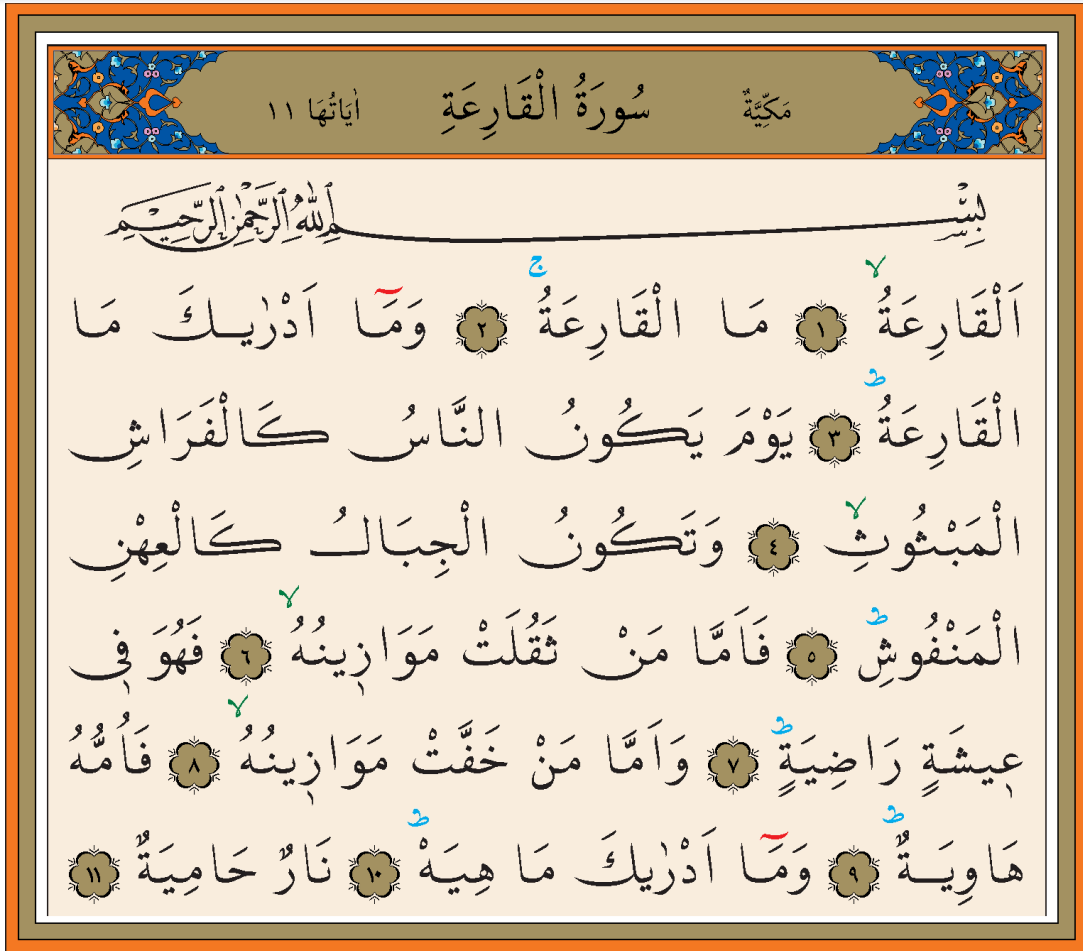 مَكِّيَّةٌ سُورَةُ الْقَارِعَةِ اٰيَاتُهَا ١١
بِسْمِ اللّٰهِ الرَّحْمٰنِ الرَّحِيمِ
اَلْقَارِعَةُۙ ﴿١﴾ مَا الْقَارِعَةُۚ ﴿٢﴾ وَمَٓا اَدْرٰيكَ مَا
الْقَارِعَةُۜ ﴿٣﴾ يَوْمَ يَكُونُ النَّاسُ كَالْفَرَاشِ
الْمَبْثُوثِۙ ﴿٤﴾ وَتَكُونُ الْجِبَالُ كَالْعِهْنِ
الْمَنْفُوشِۜ ﴿٥﴾ فَاَمَّا مَنْ ثَقُلَتْ مَوَازٖينُهُۙ ﴿٦﴾ فَهُوَ فٖي
عٖيشَةٍ رَاضِيَةٍۜ ﴿٧﴾ وَاَمَّا مَنْ خَفَّتْ مَوَازٖينُهُۙ ﴿٨﴾ فَاُمُّهُ
هَاوِيَةٌۜ ﴿٩﴾ وَمَٓا اَدْرٰيكَ مَا هِيَهْۜ ﴿١٠﴾ نَارٌ حَامِيَةٌ ﴿١١﴾